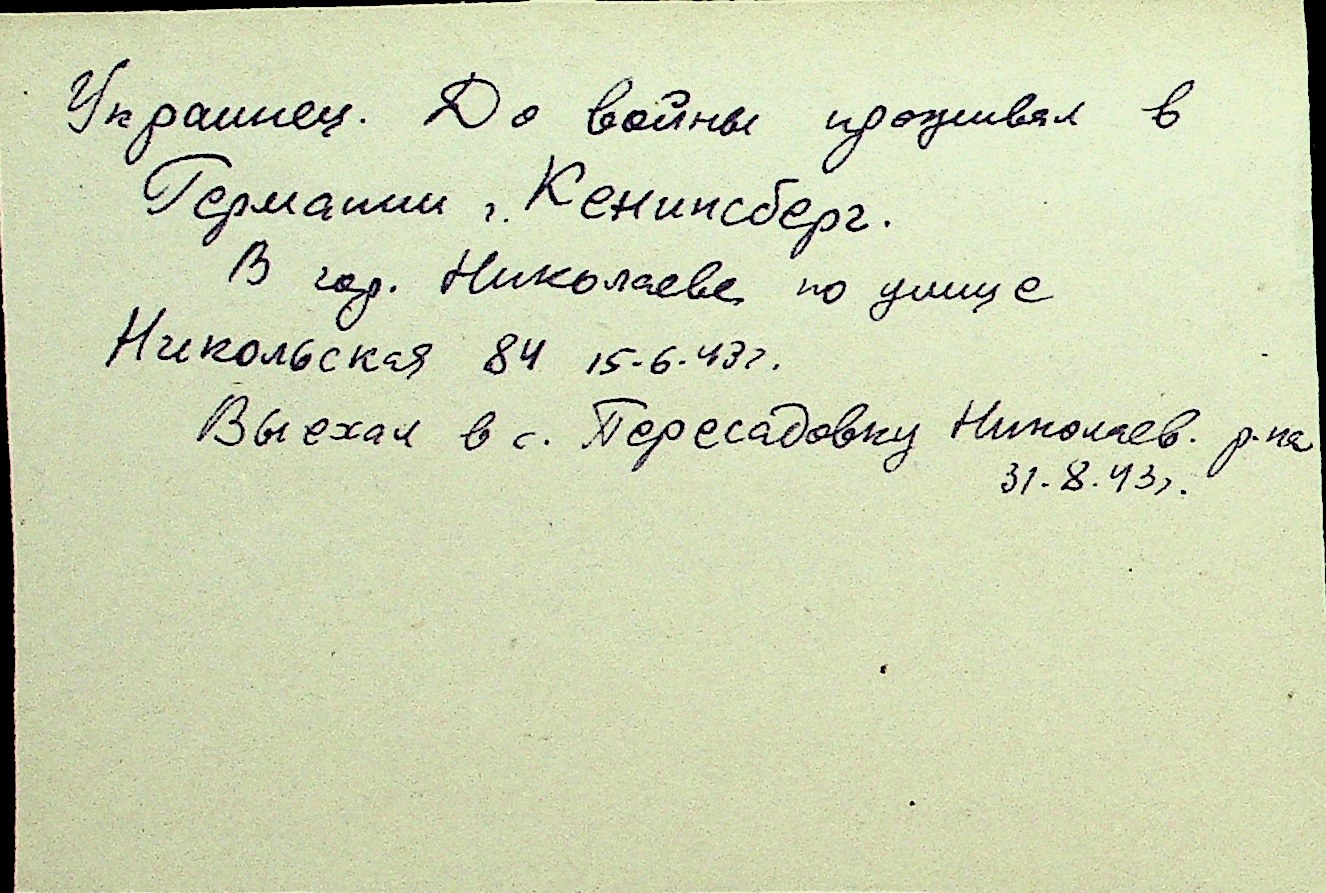 Украинец. До войны проживал в
Германии г. Кенигсберг.
В гор. Николаеве по улице
Никольская 84 15-6-43г.
Выехал в с. Пересадовку Николаев. р-на
31-8-43г.